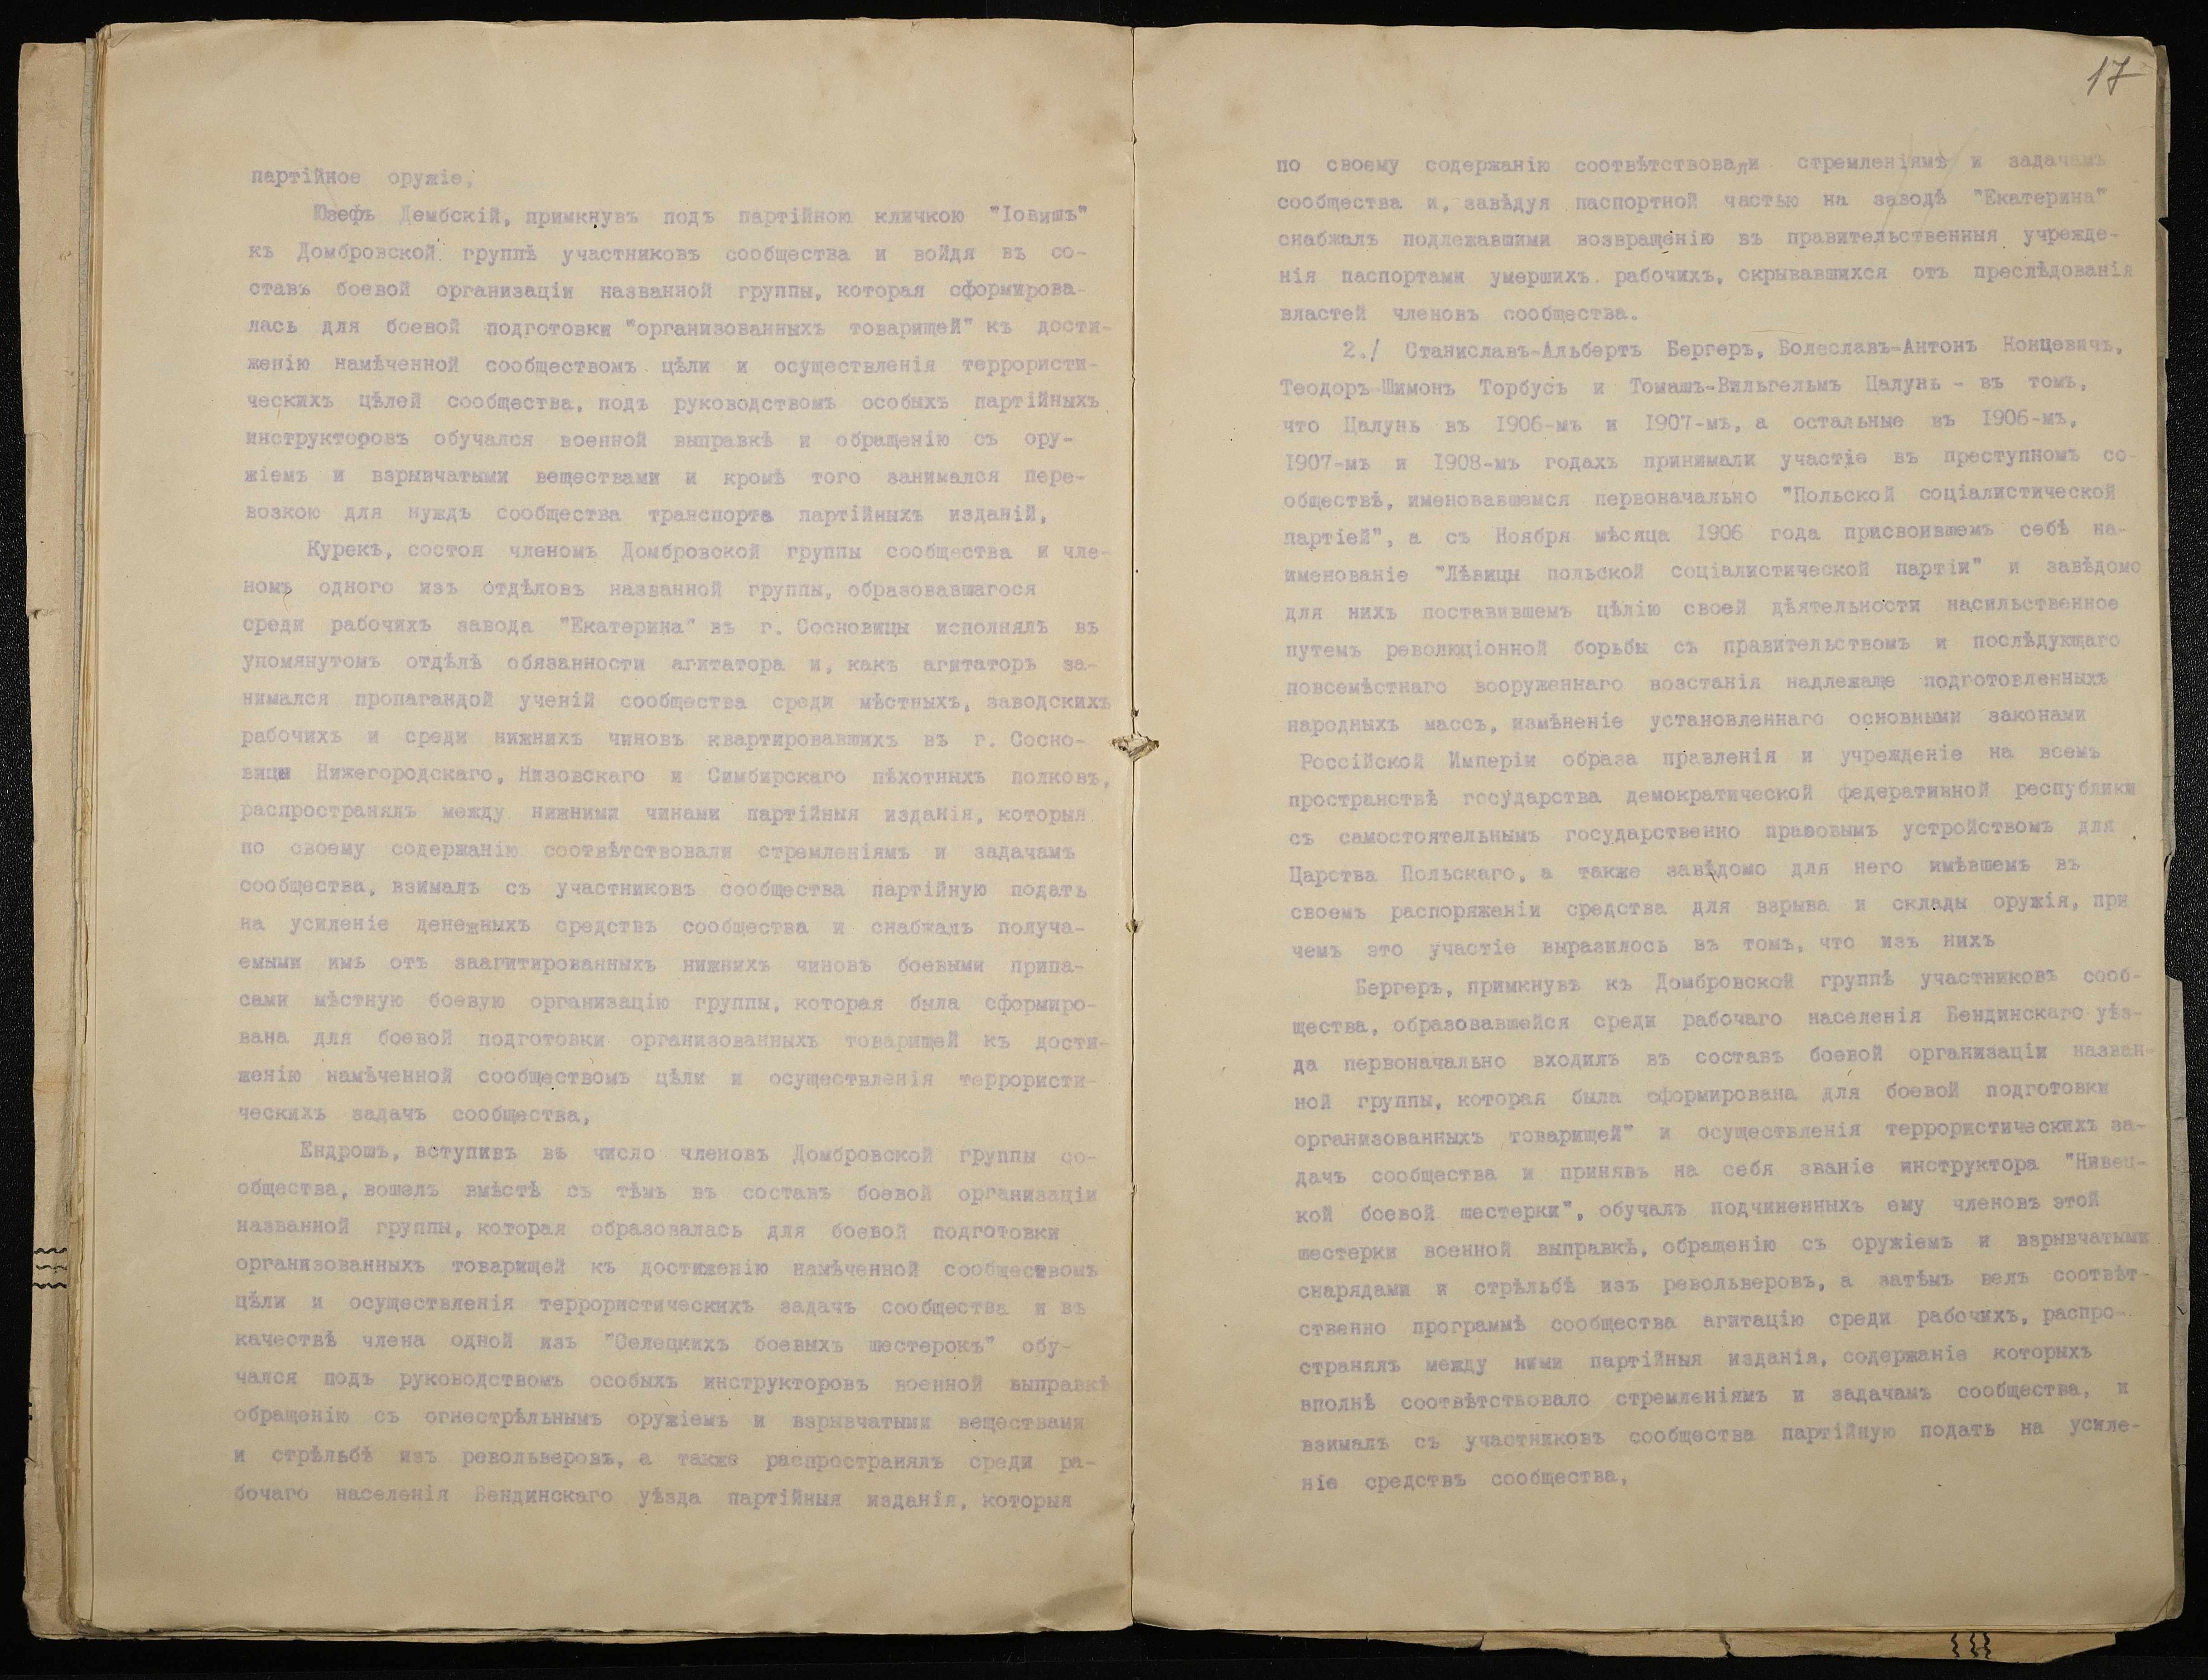 партійное оружіе,
Юзефъ Дембскій, примкнувъ подъ партійною кличкою "Іовишъ"
къ Домбровской группѣ участниковъ сообщества и войдя въ со-
ставъ боевой организаціи названной группы, которая сформирова-
лась для боевой подготовки "организованныхъ товарищей" къ дости-
женію намѣченной сообществомъ цѣли и осуществленія террористи-
ческихъ цѣлей сообщества, подъ руководствомъ особыхъ партійныхъ
инструкторовъ обучался военной выправкѣ и обращенію съ ору-
жіемъ и взрывчатыми веществами и кромѣ того занимался пере-
возкою для нуждъ сообщества транспорта партійныхъ изданій,
Курекъ, состоя членомъ Домбровской группы сообщества и чле-
номъ одного изъ отдѣловъ названной группы, образовавшагося
среди рабочихъ завода "Екатерина" въ г. Сосновицы исполнялъ въ
упомянутомъ отдѣлѣ обязанности агитатора и, какъ агитаторъ за-
нимался пропагандой ученій сообщества среди мѣстныхъ, заводскихъ
рабочихъ и среди нижнихъ чиновъ квартировавшихъ въ г. Сосно-
вицы Нижегородскаго, Низовскаго и Симбирскаго пѣхотныхъ полковъ,
распространялъ между нижними чинами партійныя изданія, которыя
по своему содержанію соотвѣтствовали стремленіямъ и задачамъ
сообщества, взималъ съ участниковъ сообщества партійную подать
на усиленіе денежныхъ средствъ сообщества и снабжалъ получа-
емыми имъ отъ заагитированныхъ нижнихъ чиновъ боевыми припа-
сами мѣстную боевую организацію группы, которая была сформиро-
вана для боевой подготовки организованныхъ товарищей къ дости-
женію намѣченной сообществомъ цѣли и осуществленія террористи-
ческихъ задачъ сообщества,
Ендрошъ, вступивъ въ число членовъ Домбровской группы со-
общества, вошелъ вмѣстѣ съ тѣмъ въ составъ боевой организаціи
названной группы, которая образовалась для боевой подготовки
организованныхъ товарищей къ достиженію намѣченной сообществомъ
цѣли и осуществленія террористическихъ задачъ сообщества и въ
качествѣ члена одной изъ "Селецкихъ боевыхъ шестерокъ" обу-
чался подъ руководствомъ особыхъ инструкторовъ военной выправкѣ
обращенію съ огнестрѣльнымъ оружіемъ и взрывчатыми веществами
и стрѣльбѣ изъ револьверовъ, а также распространялъ среди ра-
бочаго населенія Бендинскаго уѣзда партійныя изданія, которыя
17
по своему содержанію соотвѣтствовали стремленіямъ и задачамъ
сообщества и, завѣдуя паспортной частью на заводѣ "Екатерина"
снабжалъ подлежавшими возвращенію въ правительственныя учрежде-
нія паспортами умершихъ рабочихъ, скрывавшихся отъ преслѣдованія
властей членовъ сообщества.
2./ Станиславъ-Альбертъ Бергеръ, Болеславъ-Антонъ Концевичъ,
Теодоръ-Шимонъ Торбусъ и Томашъ-Вильгельмъ Цалунь - въ томъ,
что Цалунь въ 1906-мъ и 1907-мъ, а остальные въ 1906-мъ,
1907-мъ и 1908-мъ годахъ принимали участіе въ преступномъ со-
обществѣ, именовавшемся первоначально "Польской соціалистической
партіей", а съ Ноября мѣсяца 1906 года присвоившемъ себѣ на-
именованіе "Лѣвицы польской соціалистической партіи" и завѣдомо
для нихъ поставившемъ цѣлію своей дѣятельности насильственное
путемъ революціонной борьбы съ правительствомъ и послѣдующаго
повсемѣстнаго вооруженнаго возстанія надлежаще подготовленныхъ
народныхъ массъ, измѣненіе установленнаго основными законами
Россійской Имперіи образа правленія и учрежденіе на всемъ
пространствѣ государства демократической федеративной республики
съ самостоятельнымъ государственно правовымъ устройствомъ для
Царства Польскаго, а также завѣдомо для него имѣвшемъ въ
своемъ распоряженіи средства для взрыва и склады оружія, при
чемъ это участіе выразилось въ томъ, что изъ нихъ
Бергеръ, примкнувъ къ Домбровской группѣ участниковъ сооб-
щества, образовавшейся среди рабочаго населенія Бендинскаго уѣз-
да первоначально входилъ въ составъ боевой организаціи назван-
ной группы, которая была сформирована для боевой подготовки
организованныхъ товарищей" и осуществленія террористическихъ за-
дачъ сообщества и принявъ на себя званіе инструктора "Нивец-
кой боевой шестерки", обучалъ подчиненныхъ ему членовъ этой
шестерки военной выправкѣ, обращенію съ оружіемъ и взрывчатыми
снарядами и стрѣльбѣ изъ револьверовъ, а затѣмъ велъ соотвѣт-
ственно программѣ сообщества агитацію среди рабочихъ, распро-
странялъ между ними партійныя изданія, содержаніе которыхъ
вполнѣ соотвѣтствовало стремленіямъ и задачамъ сообщества, и
взималъ съ участниковъ сообщества партійную подать на усиле-
ніе средствъ сообщества,